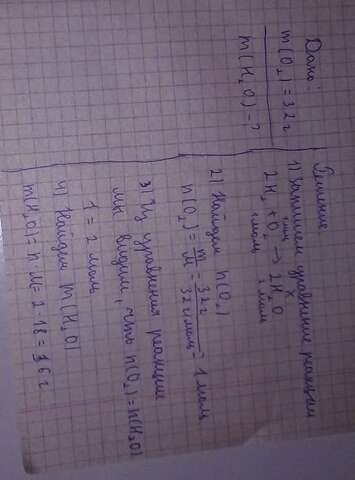 Дано:
m(O₂) = 32 г
m(H₂O) - ?
Решение
1) Запишем уравнение реакции
1 моль x
2H₂ + O₂ → 2H₂O
1 моль 2 моль
2) Найдём n(O₂)
n(O₂) = m/M = 32 г / 32 г/моль = 1 моль
3) Из уравнения реакции
мы видим, что n(O₂) = n(H₂O)
1 = 2 моль
4) Найдём m(H₂O)
m(H₂O) = n·M = 2·18 = 36 г